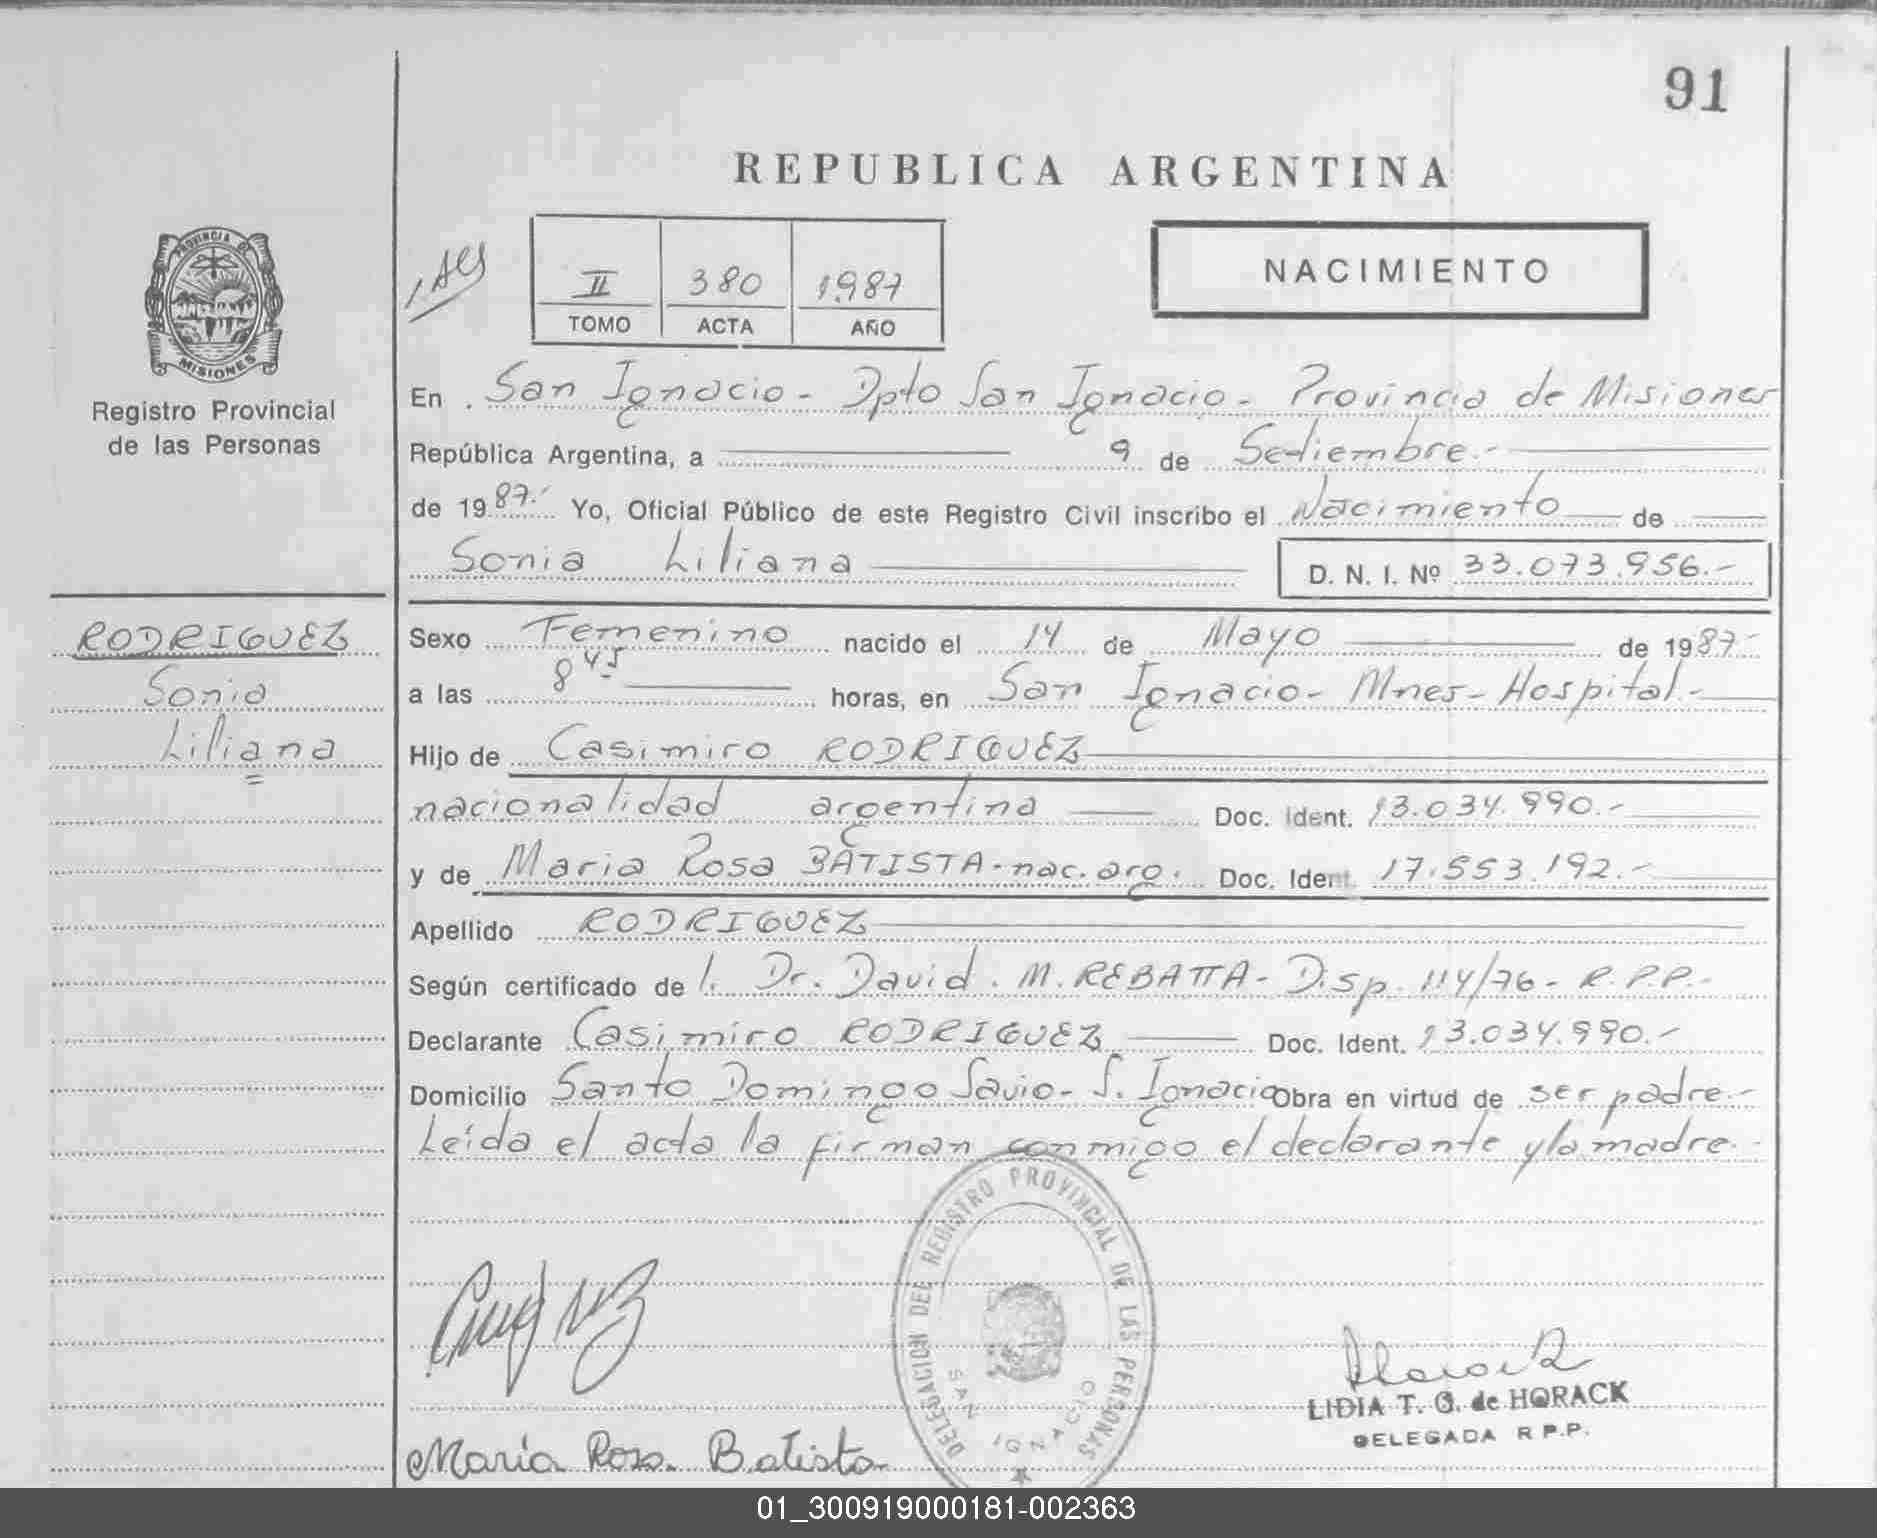 91
REPUBLICA ARGENTINA
PROVINCIA DE
MISIONES
Registro Provincial
de las Personas
II 380 1987
TOMO ACTA AÑO
NACIMIENTO
En San Ignacio - Dpto San Ignacio - Provincia de Misiones
República Argentina, a 9 de Setiembre.-
de 1987.- Yo, Oficial Público de este Registro Civil inscribo el Nacimiento de
Sonia Liliana D. N. I. Nº 33.073.956.-
RODRIGUEZ
Sonia
Liliana
Sexo Femenino nacido el 14 de Mayo de 1987.-
a las 8 45 horas, en San Ignacio - Mnes - Hospital.-
Hijo de Casimiro RODRIGUEZ
nacionalidad argentina Doc. Ident. 13.034.990.-
y de Maria Rosa BATISTA - nac. arg. Doc. Ident. 17.553.192.-
Apellido RODRIGUEZ
Según certificado de l. Dr. David. M. REBATTA - Disp. 114/76 - R.P.P.-
Declarante Casimiro RODRIGUEZ Doc. Ident. 13.034.990.-
Domicilio Santo Domingo Savio - S. Ignacio Obra en virtud de ser padre.-
Leída el acta la firman conmigo el declarante y la madre.-
DELEGACION DEL REGISTRO PROVINCIAL DE LAS PERSONAS
SAN IGNACIO
LIDIA T. G. de HORACK
DELEGADA R.P.P.
María Rosa Batista
01_300919000181-002363